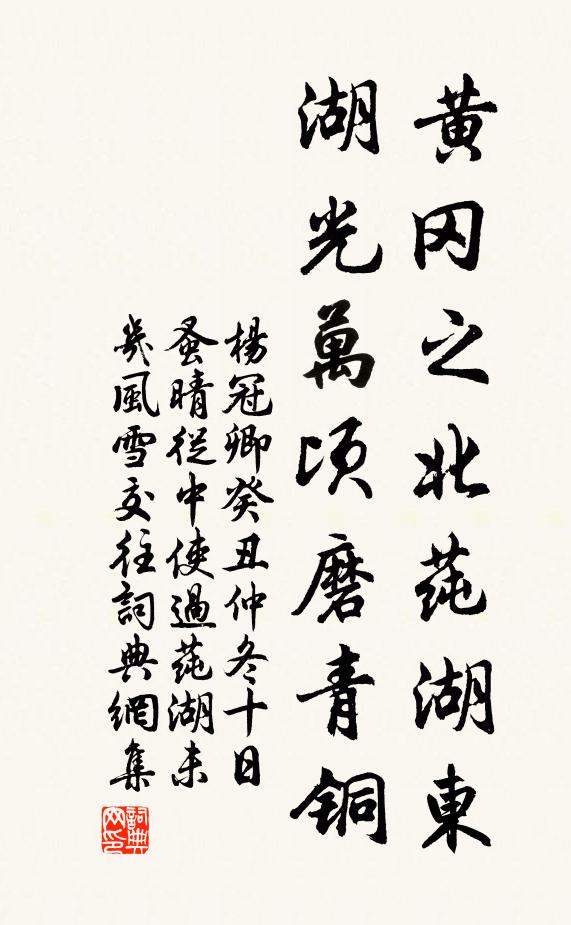 黄冈之北蒓湖東
湖光萬顷磨青铜
楊冠卿癸丑仲冬十日
蚤晴從中使過蒓湖未
幾風雪交往詞典網集
詞典
网印